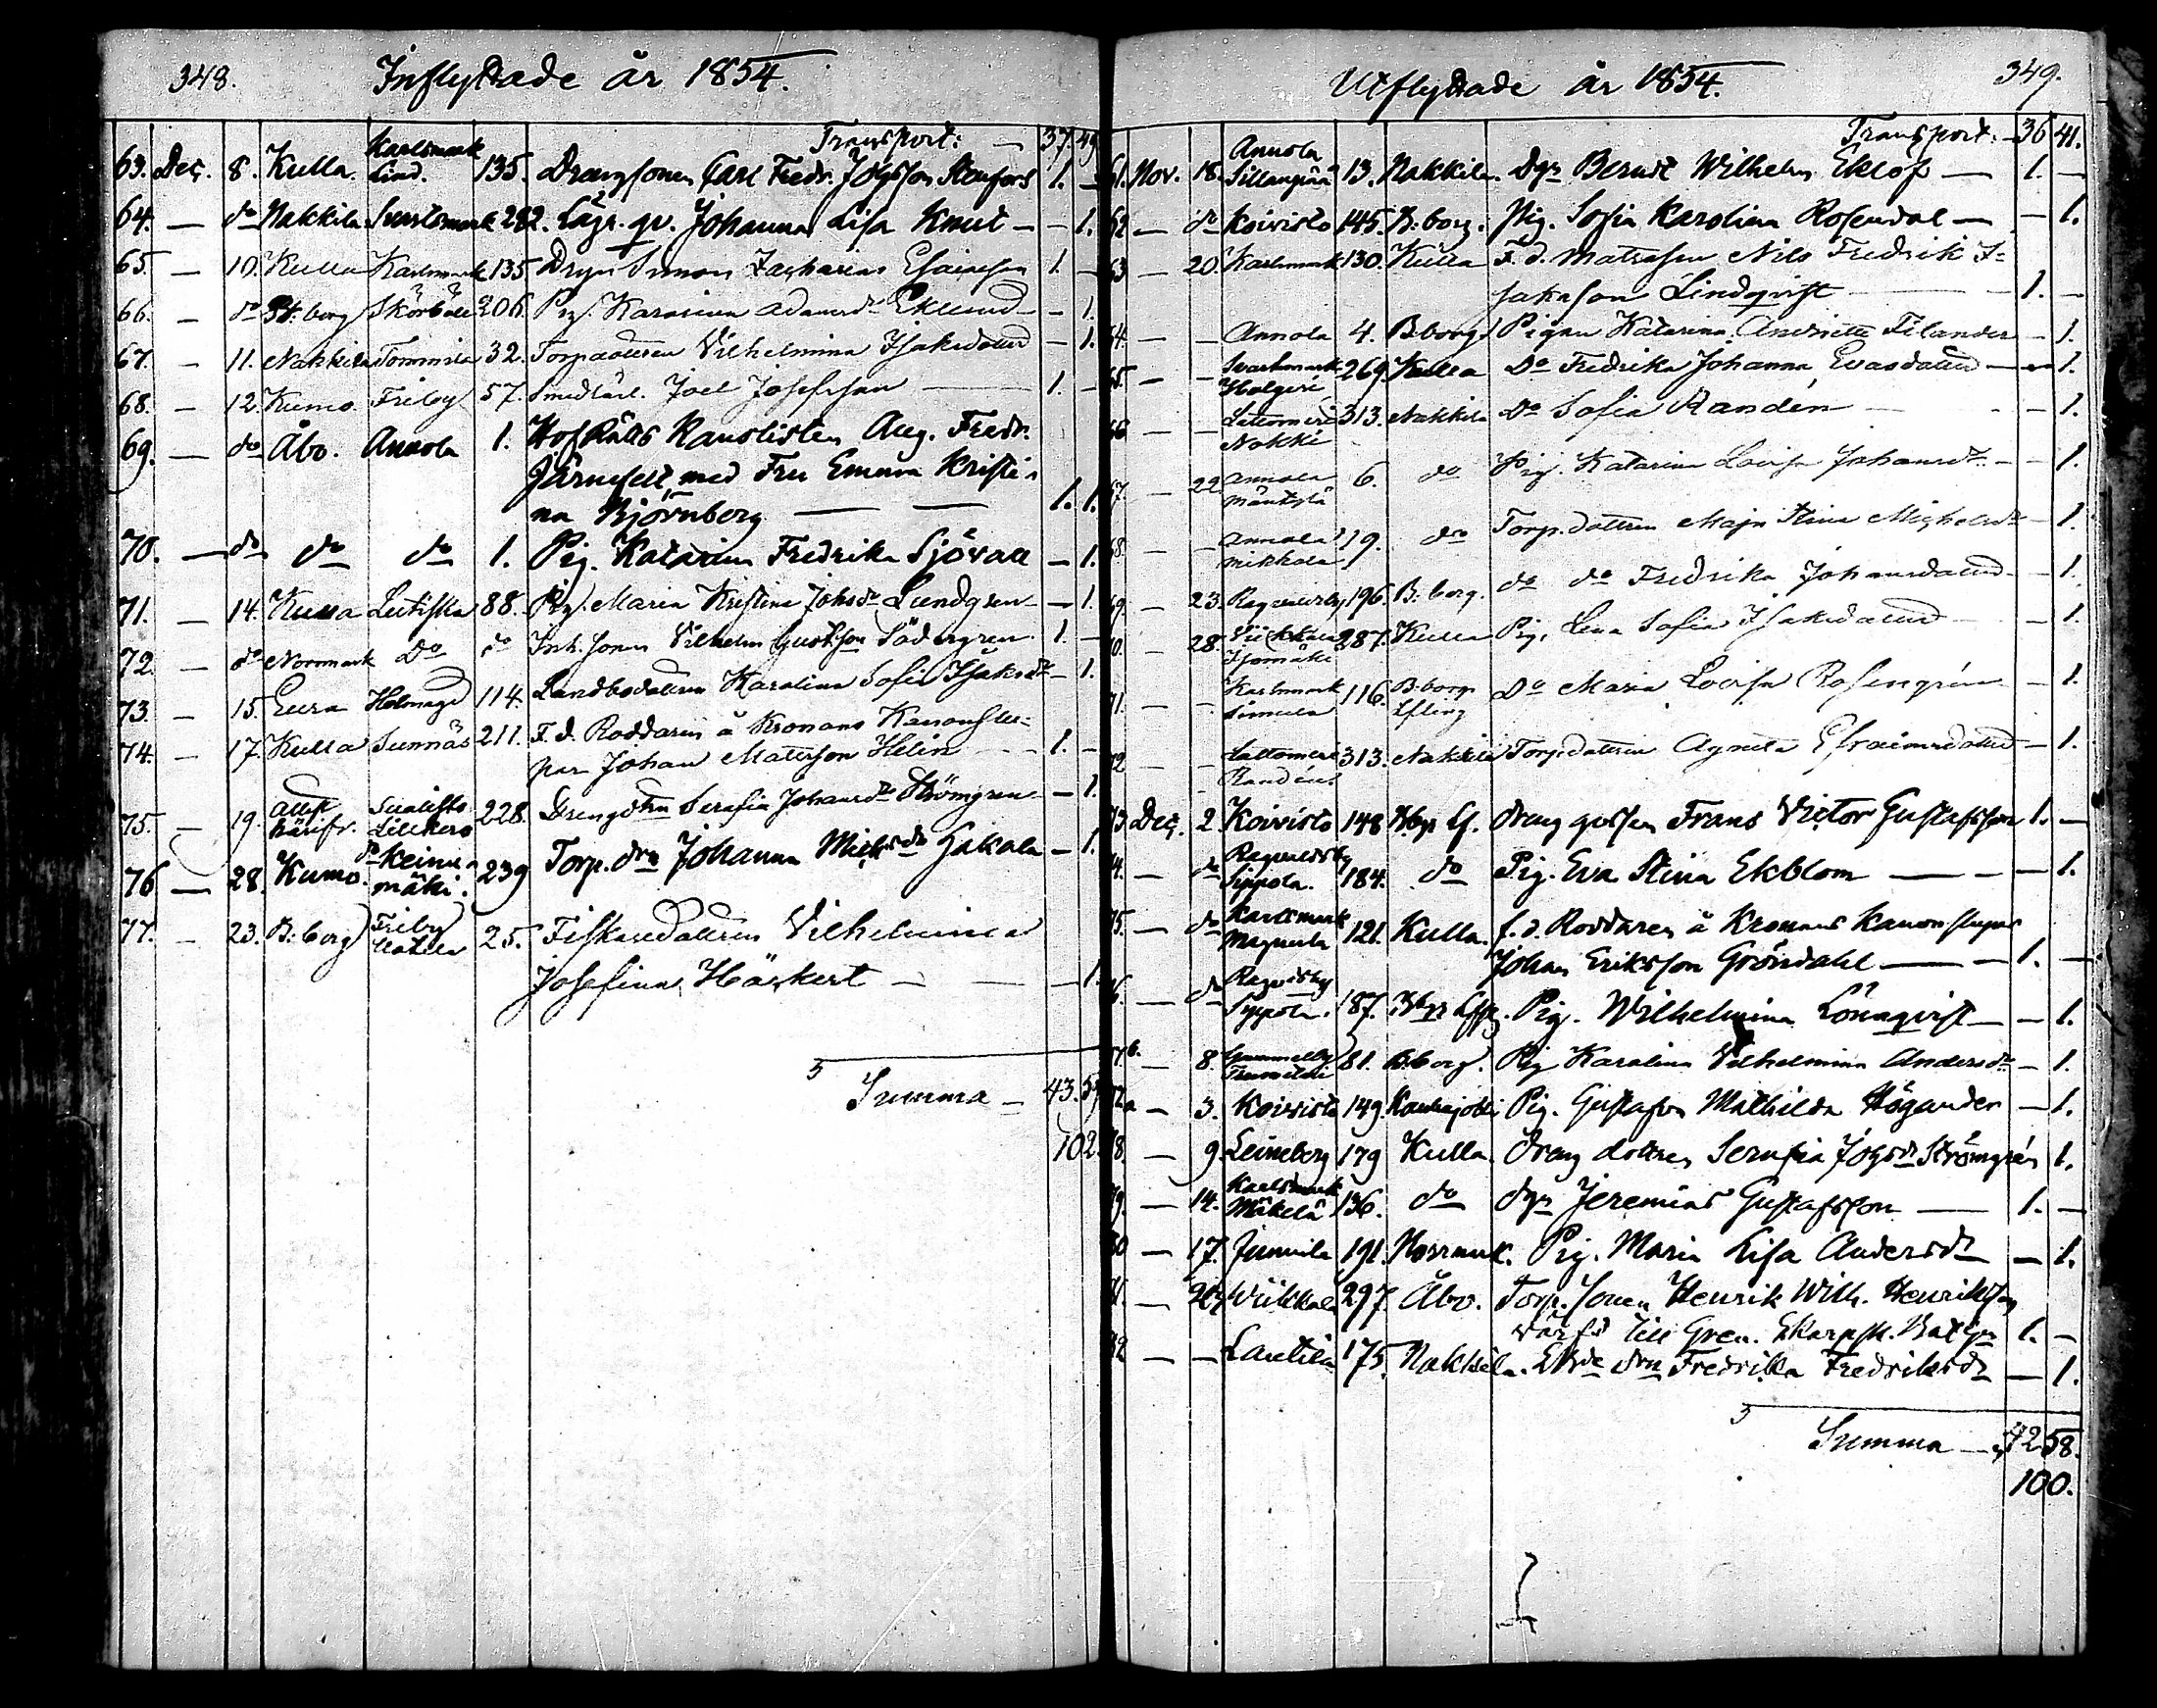 348. Inflyttade år 1854.
Transport: — 37. 49
63. Dec. 8. Kulla. Karlsmark Lind. 135. Drängsonen Carl Fredr. Johsson Stenfors 1. —
64. — do Nakkila Svartsmark 282. Lägr. qv. Johanna Lisa Knut — — 1.
65. — 10. Kulla Karlsmark 135 Drgn Simon Zacharias Esaiasson 1. —
66. — do B: borg Skörböle 206. Pig. Karolina Adamsdr Eklund — 1.
67. — 11. Nakkila Tommila 32. Torpdottren Vilhelmina Isaksdotter — 1.
68. — 12. Kumo. Friby 57. Smedlärl. Joel Josefsson — 1. —
69. — do Åbo. Anaola 1. HofRätts Kanslisten Aug. Fredr.
Järnefelt med Fru Emma Kristi-
na Björnberg — — 1. 1.
70. — do do do 1. Pig. Katarina Fredrika Sjövall — 1.
71. — 14. Kulla Leitiska 88. Pig. Maria Kristina Johsdr Lundgren — 1.
72. — do Norrmark Do do Inh. sonen Vilhelm Gustfson Södergren 1. —
73. — 15. Eura Holmagd 114. Landbodottren Karolina Sofia Isaksdr — 1.
74. — 17. Kulla Sunnäs 211. F. d. Roddaren å Kronans Kanonslu-
par Johan Mattsson Helin — — 1. —
75. — 19. 228. Drengdttrn Serafia Johansdr Strömgren — 1.
76 — 28. Kumo. do Keinu- mäki. 239 Torp. drn Johanna Michsdr Gakola — 1.
77. — 23. B: borg Friby 25. Fiskaredottren Vilhelmina
Josefina Häskert — — — 1.
Summa — 43. 59
102.
Utflyttade år 1854. 349.
Transport. — 36 41.
61. Nov. 18. Annola Sillanpää 13. Nakkila. Dgn Berndt Wilhelm Eklöf — 1. —
62 — do Koivisto 145. B: borg. Pig. Sofia Karolina Rosendal — — 1.
63 — 20. Karlsmark 130. Kulla F. d. Matrosen Nils Fredrik I-
saksson Lindqvist — 1. —
64. — — Annola 4. B:borg Pigan Katarina Andriette Filander — 1.
65. — — Svartsmark Holgeri 269. Kulla Do Fredrika Johanna Evasdotter — 1.
66 — — Lattomeri Nokki 313. Nakkila Do Sofia Randen — — 1.
67. — 22. Annola Mäntylä 6. do Pig. Katarina Lovisa Johansdr — — 1.
68. — — Annola Mikkola 19. do Torp. dottren Maja Stina Michelsdr — 1.
69. — 23. Ragvaldsby 196. B: borg. do do Fredrika Johansdotter — 1.
70. — 28. Viikkala Isomäki 287. Kulla Pig. Lena Sofia Isaksdotter — — 1.
71. — — Karlsmark Simula 116. B: borg Lfling Do Maria Lovisa Rosengrén — 1.
72 — — Lattomeri Randén 313. Nakkila Torp. dottren Agneta Efraimsdotter — 1.
73. Dec. 2. Koivisto 148 Bbg Lf. Dräng gossen Frans Victor Gustafsson 1. —
74. — do Ragvaldsby Sippola. 184. do Pig. Eva Stina Ekblom — — 1.
75. — do Karlsmark Magnula 121. Kulla. f. d. Roddaren å Kronans Kanonslupar
Johan Eriksson Gröndahl — — 1. —
76. — do Ragvdsby Sippola. 187. Pig. Wilhelmina Lönnqvist — — 1.
77b. — 8. Gammelby 81. B:borg. Pig Karolina Vilhelmina Andersdr — 1.
77a — 3. Koivisto 149. Kauhajoki Pig. Gustafva Mathilda Högander — 1.
78. — 9. Leineberg 179 Kulla. Dräng dottren Serafia Johsdr Strömgrén 1.
79. — 14. Karlsmark Mäkelä 136. do dgn Jeremias Gustafsson — 1. —
80 — 17. Junnila 191. Norrmark. Pig. Maria Lisa Andersdr — 1.
81. — Wiikkala 297 Åbo. Torp. Sonen Henrik Wilh. Henriksson
värfd till Gren. Skarpsk. Batljn 1. —
82 — — Lautila 175. Nakkila. drn Fredrika Fredriksdr — 1.
Summa — 42 58.
100.